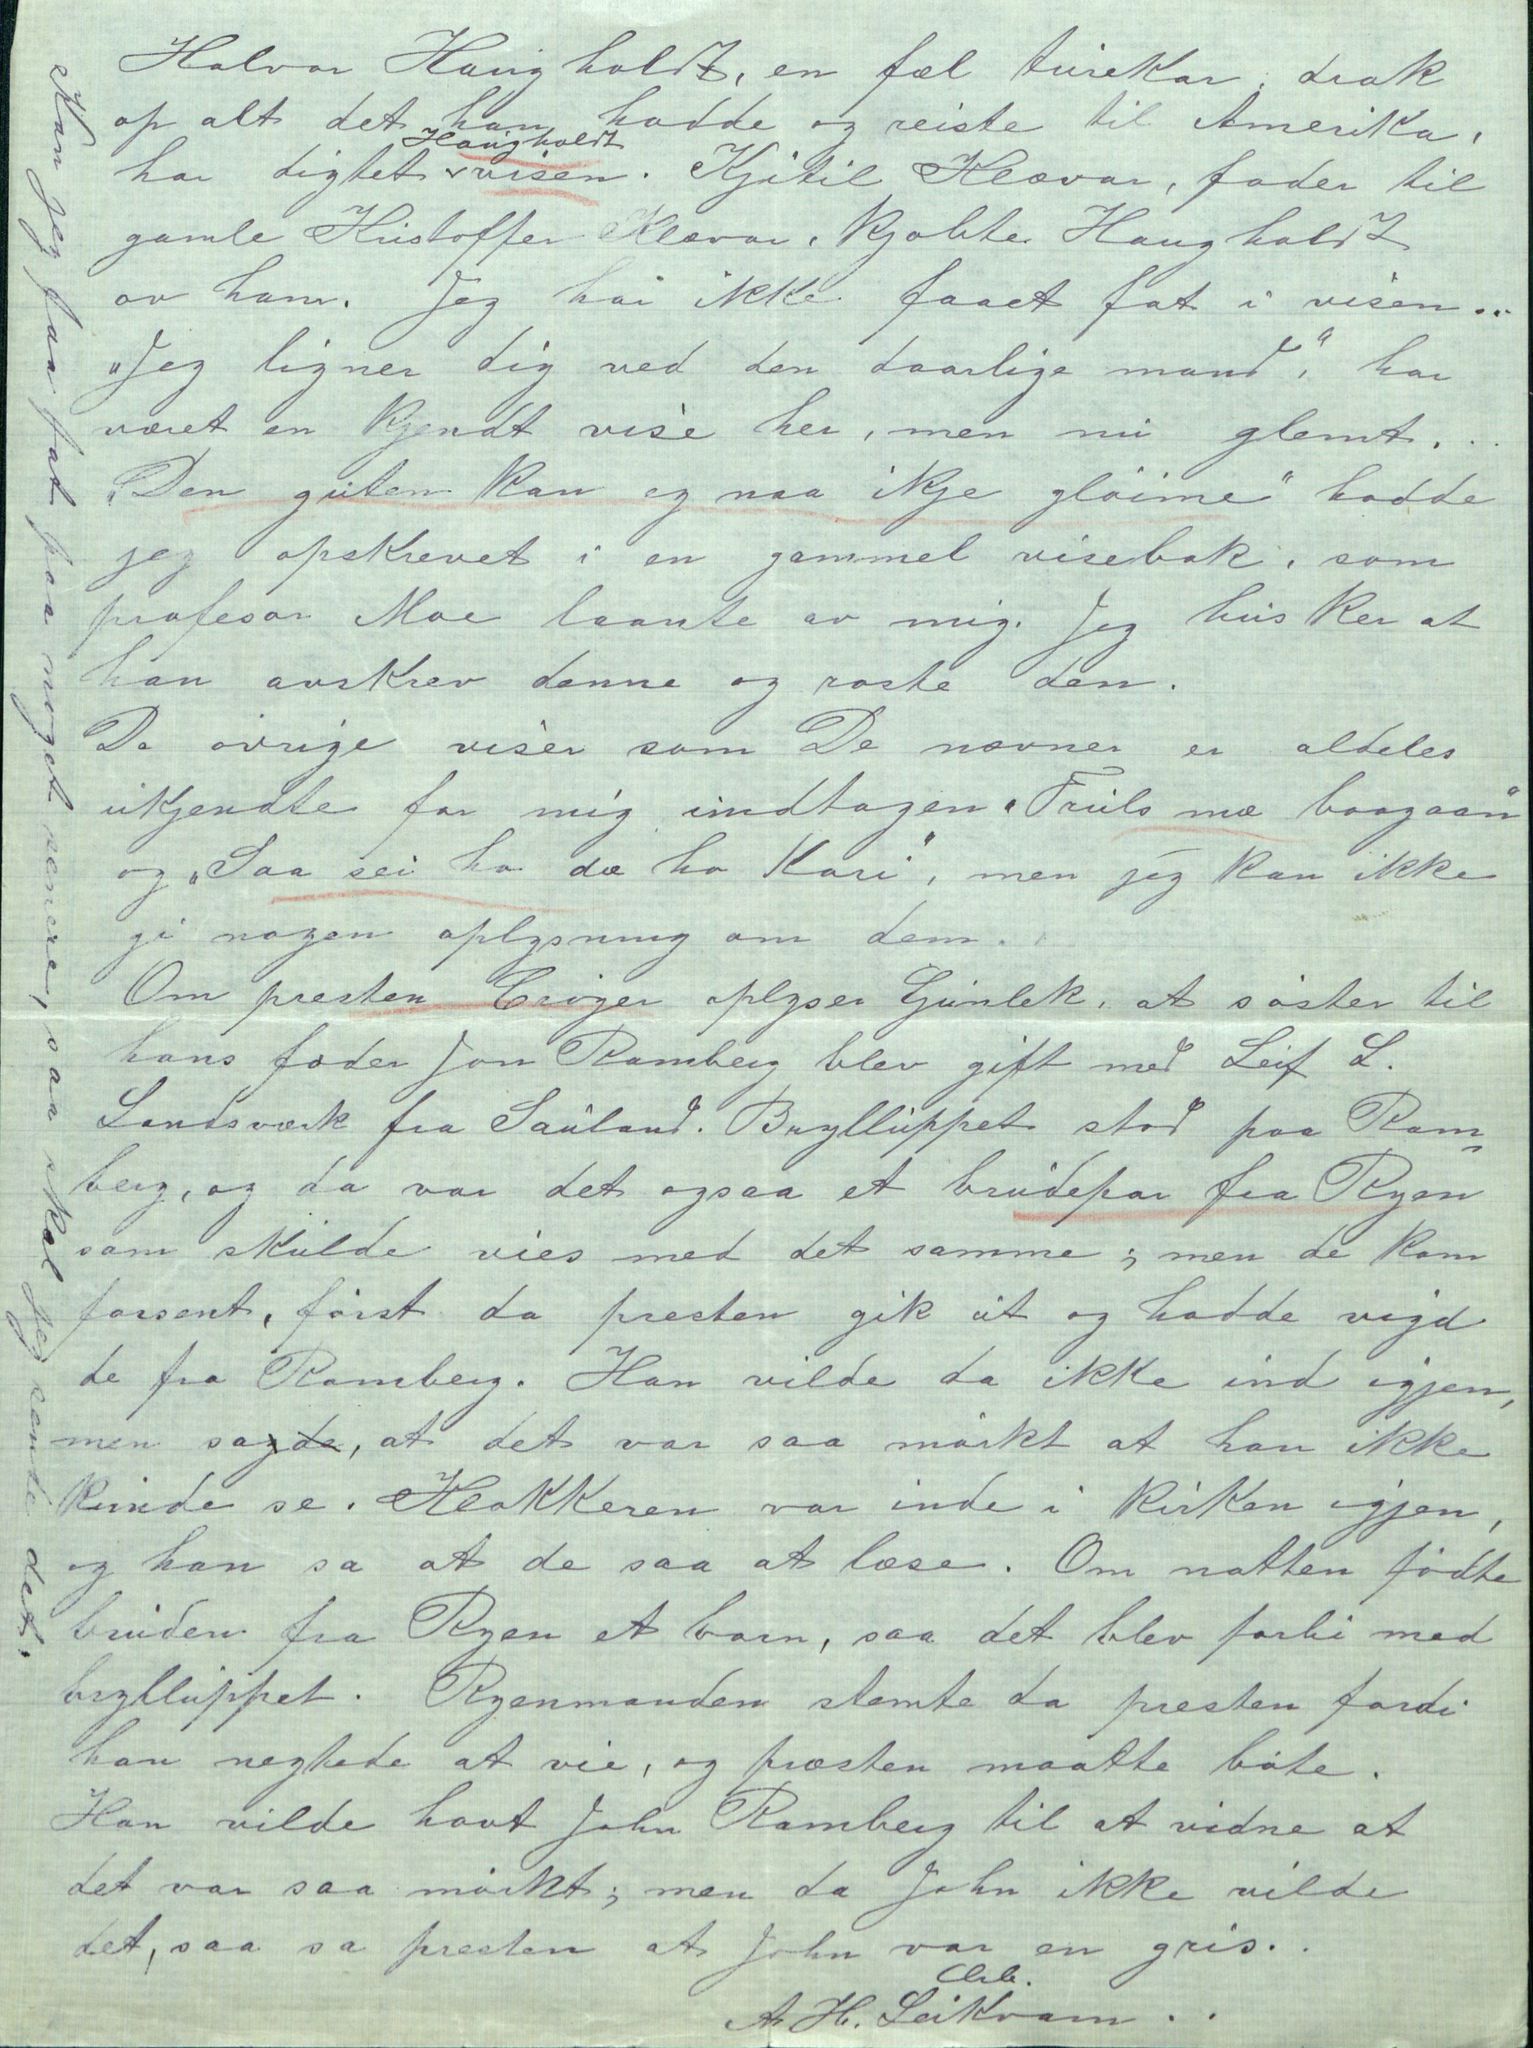 Halvor Haugholdt, en fæl turekar, drak
op alt det han hadde og reiste til Amerika,
har digtet Haugholdtvisen. Kjötil Klævar, fader til
gamle Kristoffer Klævar, kjøbte Haugholdt
av ham. Jeg har ikke faaet fat i visen..
"Jeg ligner dig ved den daarlige mand", har
været en kjendt vise her, men nu glemt...
"Den guten kan eg naa ikje glöime" hadde
jeg opskrevet i en gammel visebok, som
profesor Moe laante av mig. Jeg husker at
han avskrev denne og roste den.
De övrige viser som De nævner er aldeles
ukjendte for mig undtagen "Truls mæ baagaan"
og "Saa sei ho dæ ho Kari", men jeg kan ikke
gi nogen oplysning om dem.
Om presten Cröger oplyser Gunlek, at söster til
hans fader Jon Ramberg blev gift med Leif L.
Landsværk fra Sauland. Bryllüppet stod paa Ram-
berg, og da var det ogsaa et brudepar fra Ryen
som skulde vies med det samme; men de kom
forsent, först da presten gik ut og hadde vigd
de fra Ramberg. Han vilde da ikke ind igjen,
men sagde, at det var saa mörkt at han ikke
kunde se. Klokkeren var inde i kirken igjen,
og han sa at de saa at læse. Om natten födte
bruden fra Ryen et barn, saa det blev forbi med
bryllüppet. Ryenmanden stemte da presten fordi
han negtede at vie, og præsten maatte böte.
Han vilde havt John Ramberg til at vidne at
det var saa mörkt; men da John ikke vilde
det, saa sa presten at John var en gris..
Arb.
A. H. Leikvam..
Kan jeg faa fat paa noget senere, saa skal jeg sende det.